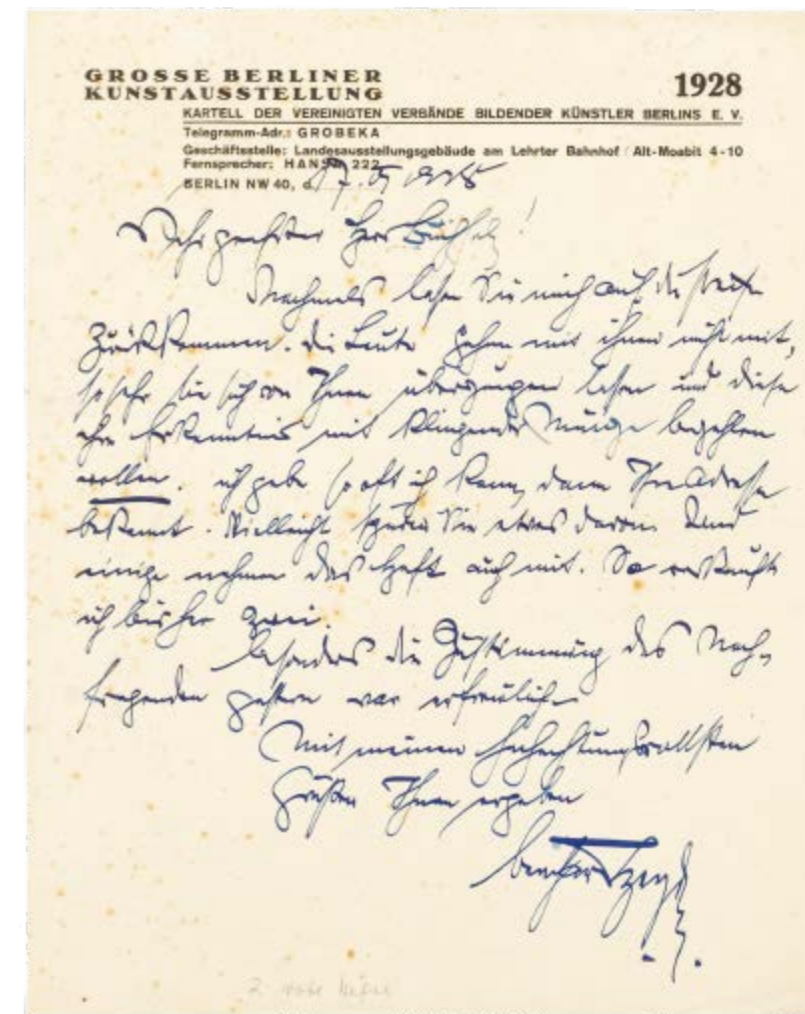 GROSSE BERLINER
KUNSTAUSSTELLUNG
1928
KARTELL DER VEREINIGTEN VERBÄNDE BILDENDER KÜNSTLER BERLINS E. V.
Telegramm-Adr.: GROBEKA
Geschäftsstelle: Landesausstellungsgebäude am Lehrter Bahnhof / Alt-Moabit 4-10
Fernsprecher: HANSA 222
BERLIN NW 40, d.
Sehr geehrter Herr
Nochmals lassen Sie mich auf die
Zurückkommen. Die Leute gehen mit ihnen nicht mit,
so sehr sie sich von Ihnen überzeugen lassen und diese
ihre Erkenntnis mit klingender Münze bezahlen
wollen. ich gebe so oft ich kann, dann Ihre Adresse
bekannt. Vielleicht spüren Sie etwas davon. Und
einige nehmen das Heft auch mit. So verkaufte
ich bisher zwei.
besonders die Zustimmung des Nach-
fragenden gestern war erfreulich
Mit meinen hochachtungsvollsten
Grüßen Ihnen ergeben